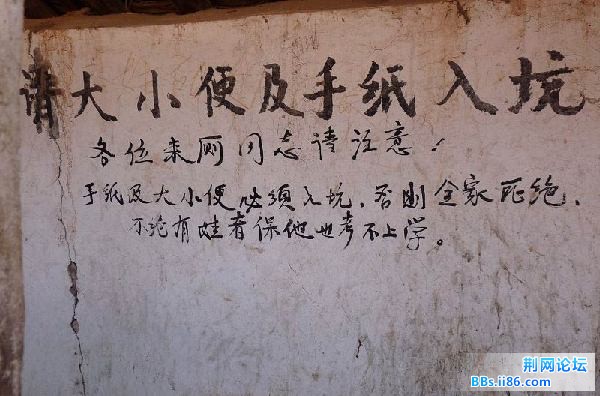 请大小便及手纸入坑
各位来厕同志请注意!
手纸及大小便必须入坑,否则全家死绝,
不绝有娃者保他也考不上学。
荆网论坛
BBs.ii86.com